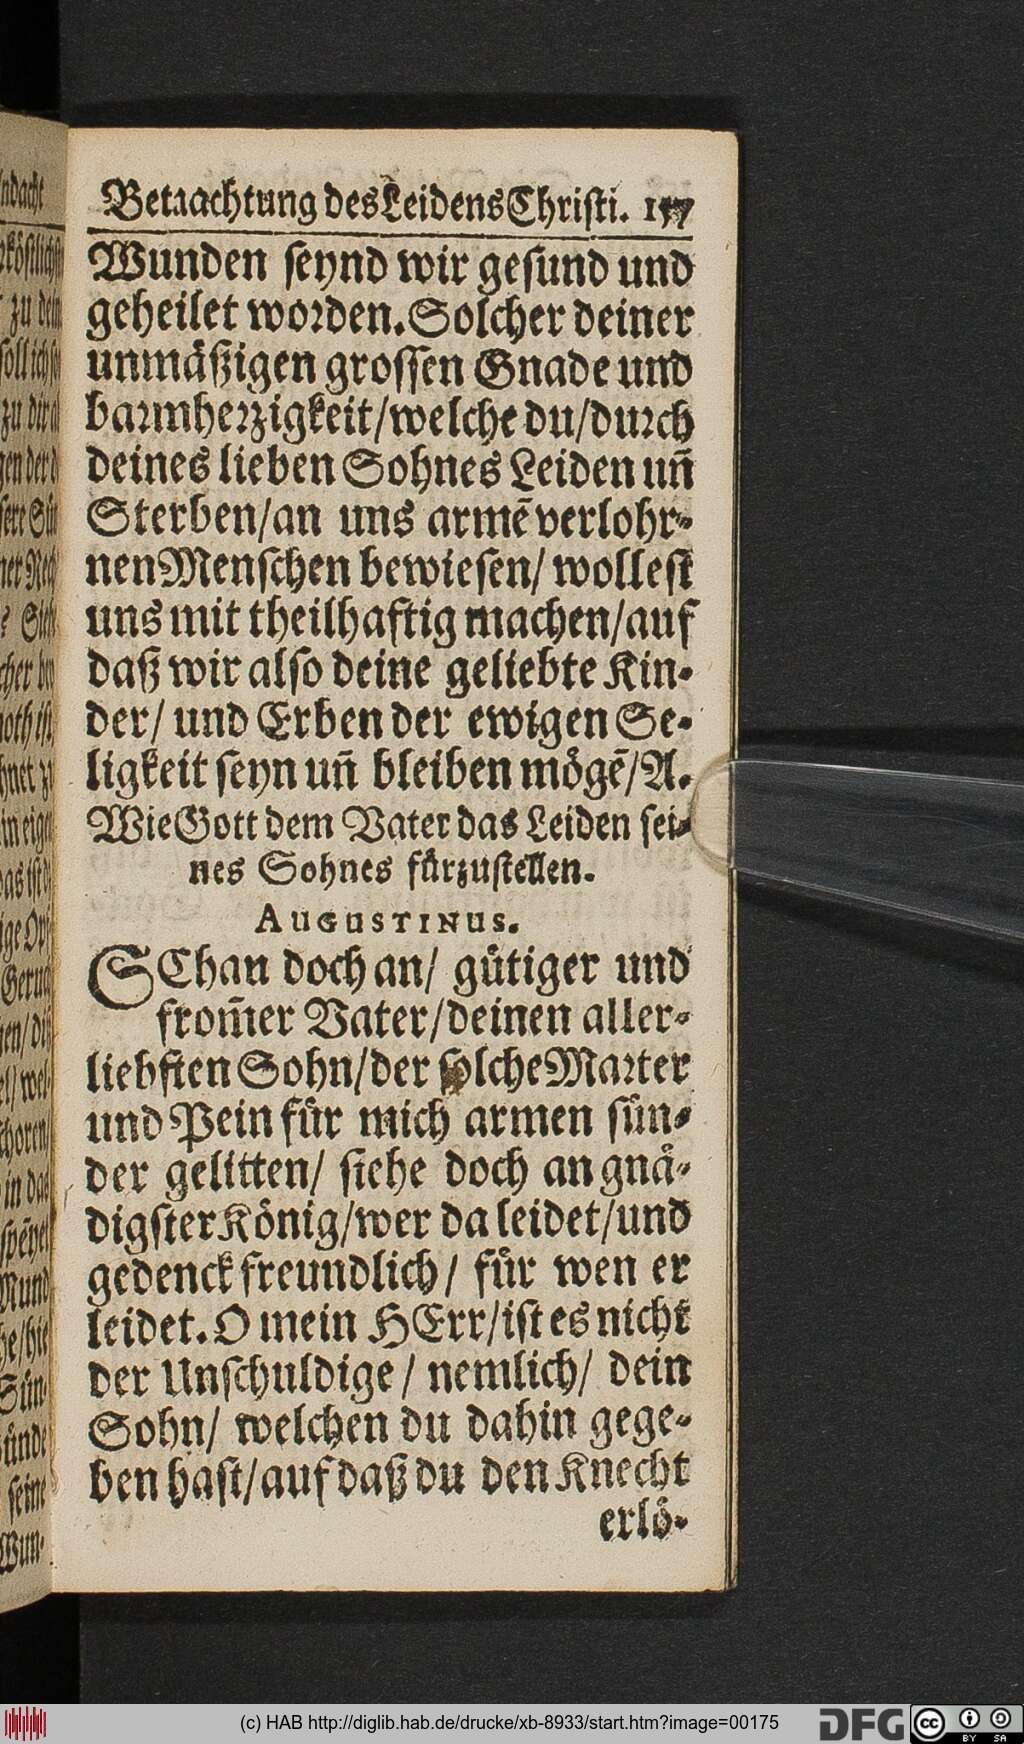 Betaachtung des Leidens Christi. 157
Wunden seynd wir gesund und
geheilet worden. Solcher deiner
unmäßigen grossen Gnade und
barmherzigkeit/welche du/durch
deines lieben Sohnes Leiden uñ
Sterben/an uns armẽ verlohr-
nen Menschen bewiesen/ wollest
uns mit theilhaftig machen/auf
daß wir also deine geliebte Kin-
der/ und Erben der ewigen Se-
ligkeit seyn uñ bleiben mögẽ/A.
Wie Gott dem Vater das Leiden sei-
nes Sohnes fürzustellen.
AUGUSTINUS.
SChau doch an/ gütiger und
from̃er Vater/deinen aller-
liebsten Sohn/der solche Marter
und Pein für mich armen sün-
der gelitten/ siehe doch an gnä-
digster König/wer da leidet/und
gedenck freundlich/ für wen er
leidet. O mein HErr/ist es nicht
der Unschuldige/ nemlich/ dein
Sohn/ welchen du dahin gege-
ben hast/auf daß du den Knecht
erlö-
(c) HAB http://diglib.hab.de/drucke/xb-8933/start.htm?image=00175
DFG
cc BY SA